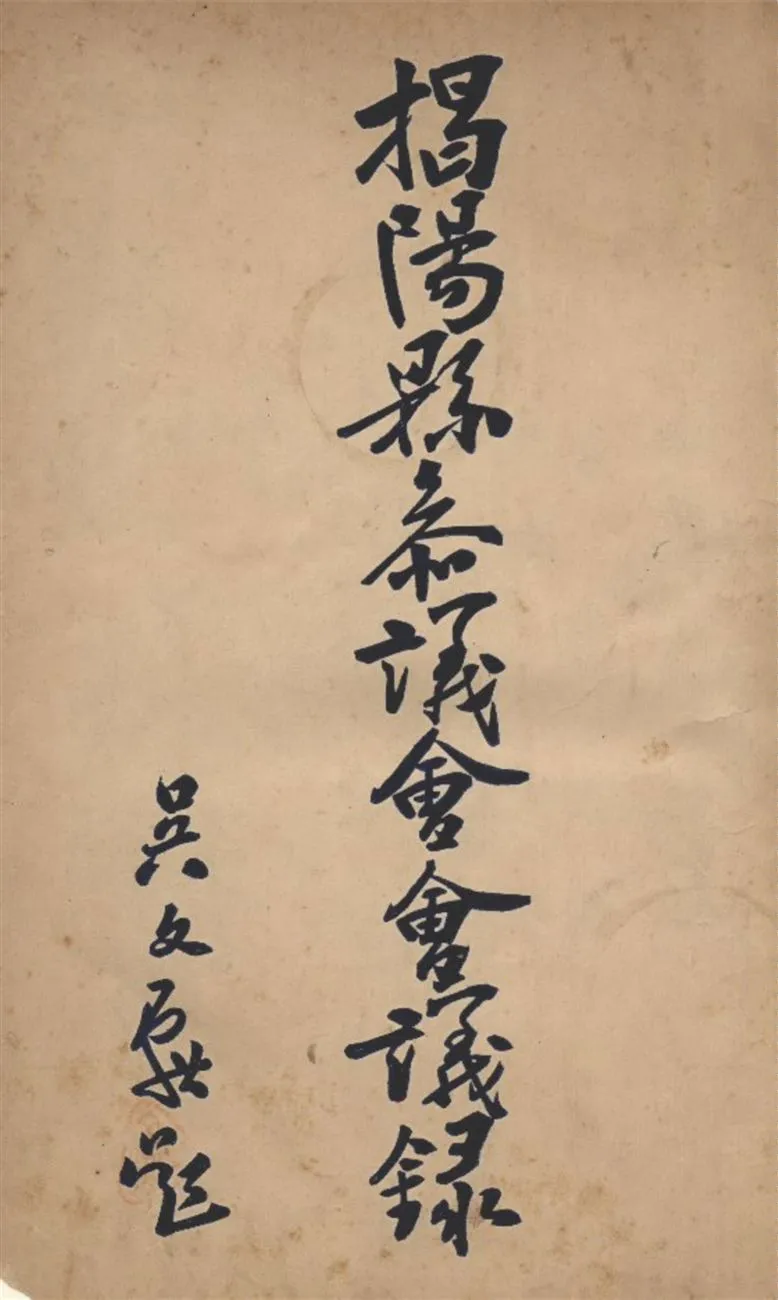 揭陽縣參議會會議錄
吳文獻題